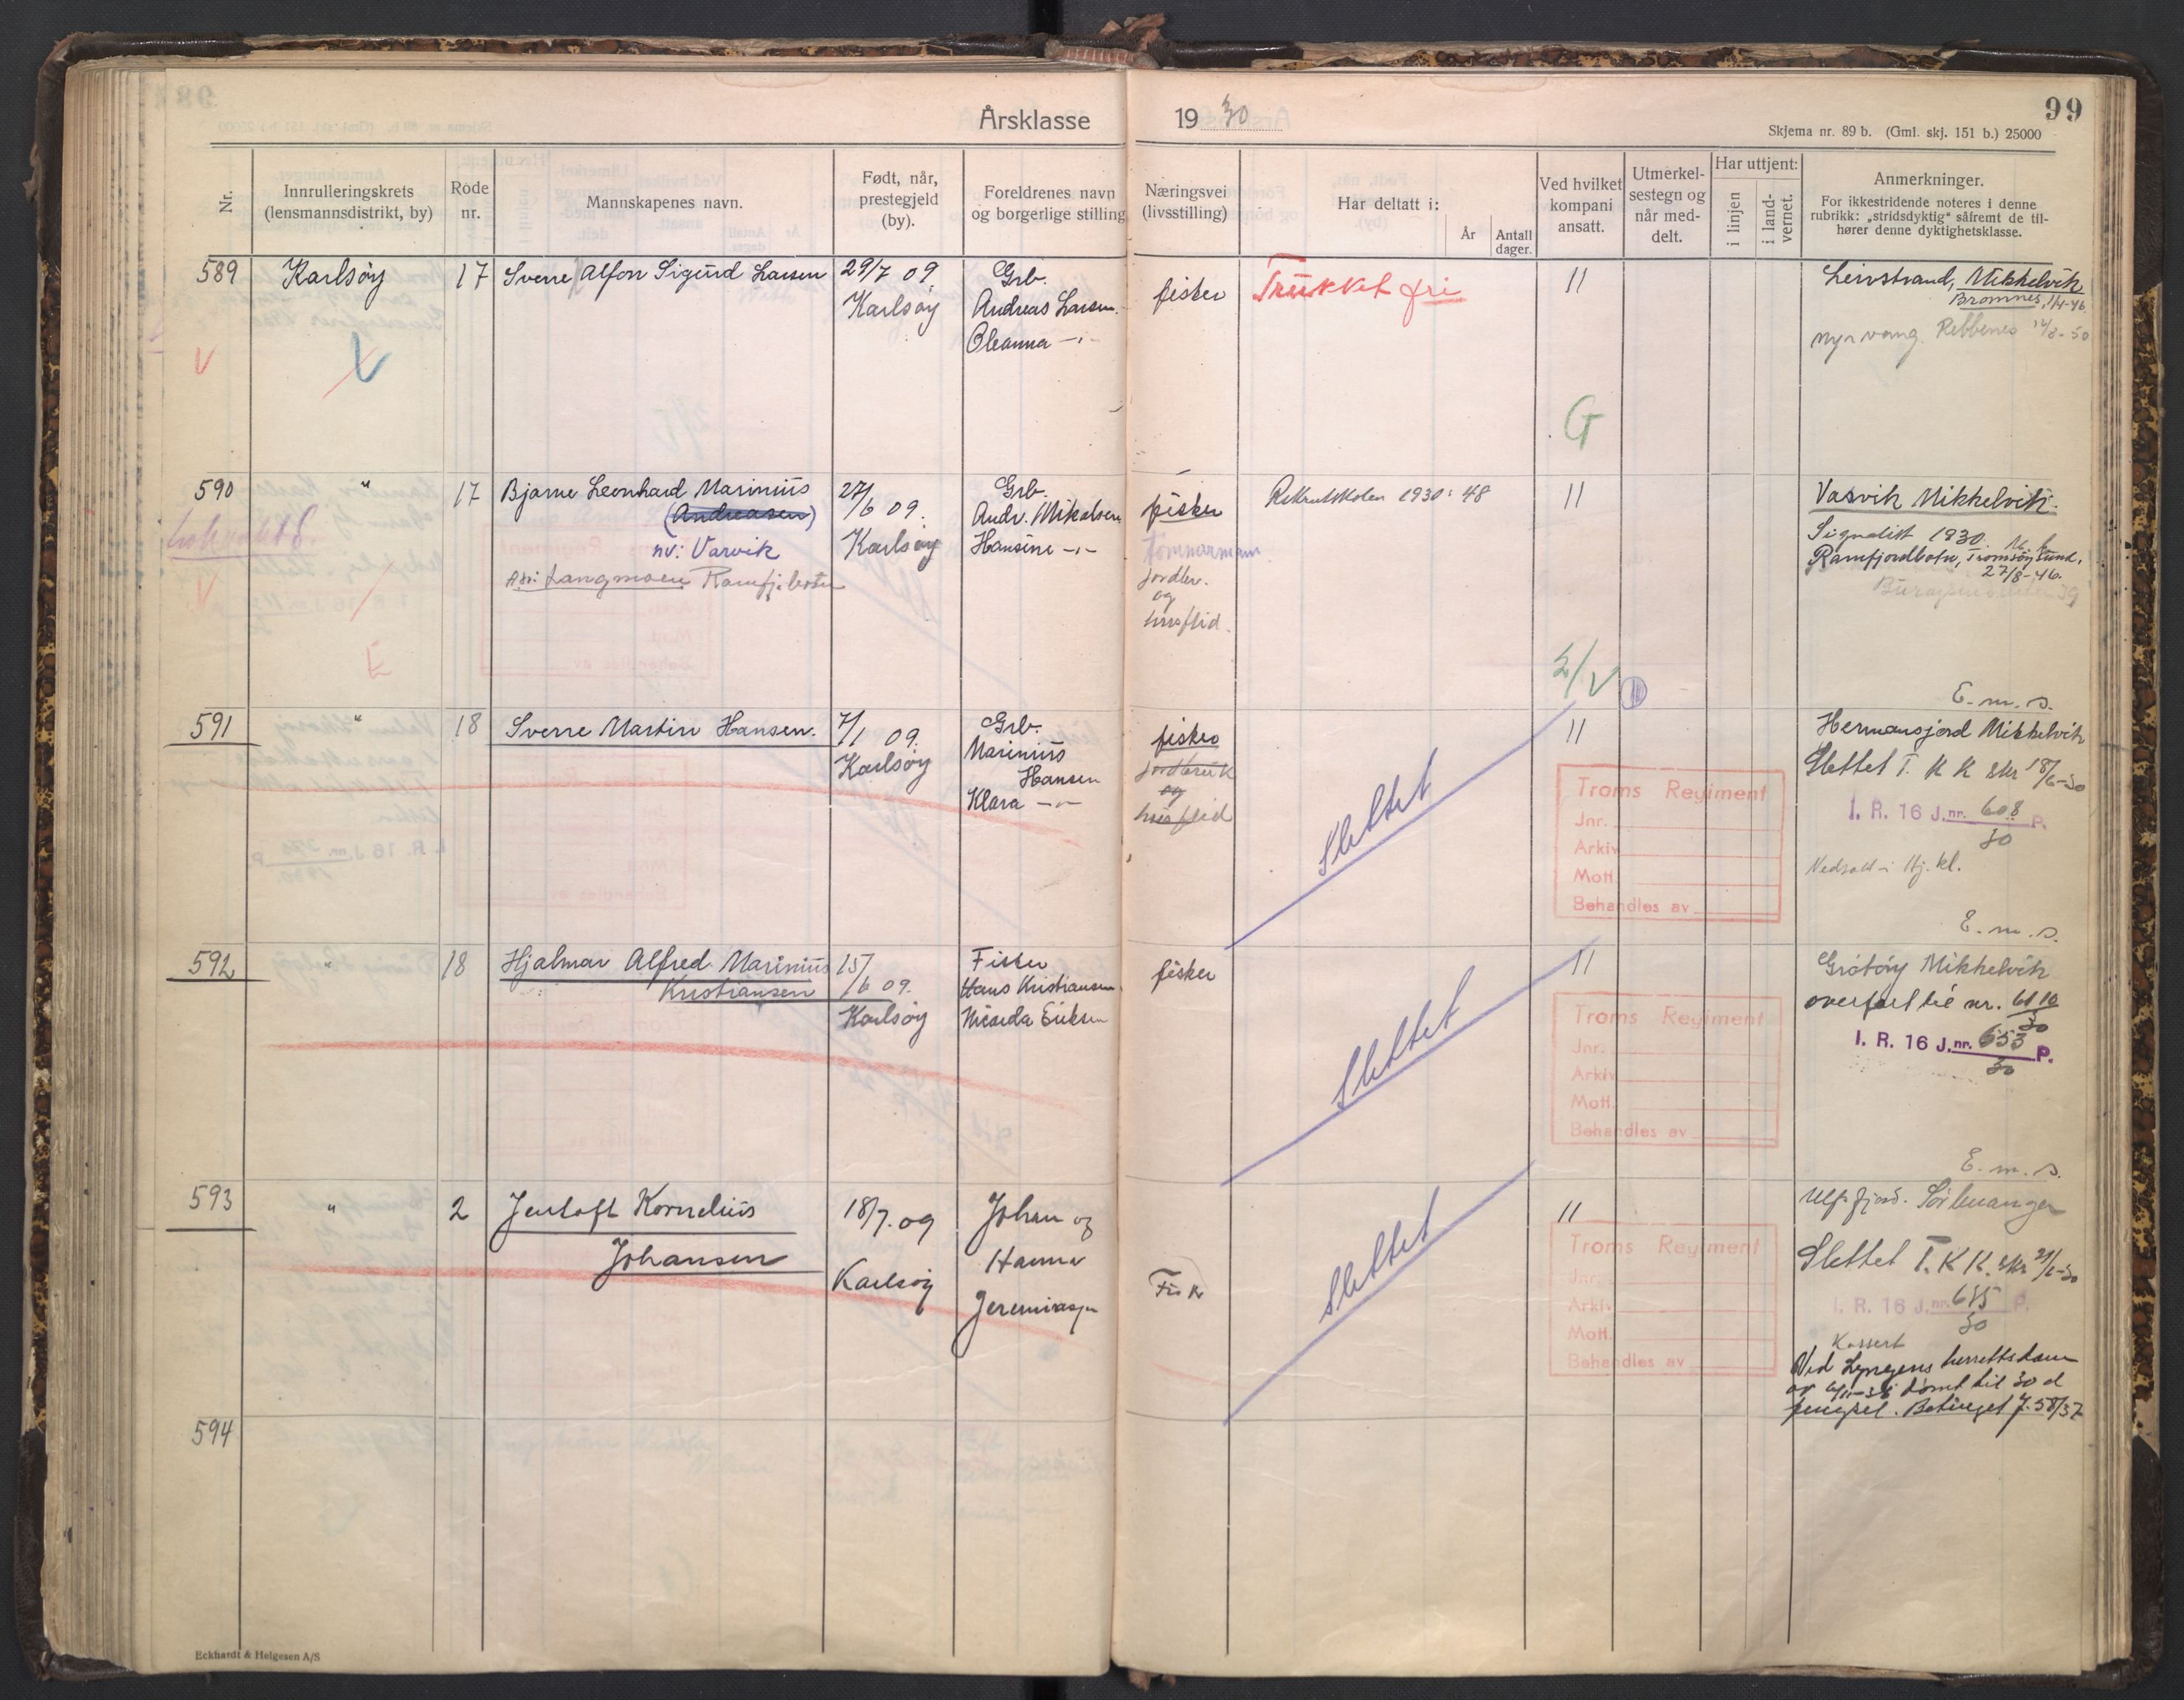 99
Årsklasse 1930
Skjema nr. 89 b. (Gml. skj. 151 b.) 25000
Nr.
Innrulleringskrets (lensmannsdistrikt, by)
Rode nr.
Mannskapenes navn.
Født, når, prestegjeld (by).
Foreldrenes navn og borgerlige stilling
Næringsvei (livsstilling)
Har deltatt i:
År
Antall dager.
Ved hvilket kompani ansatt.
Utmerkelsestegn og når meddelt.
Har uttjent:
i linjen
i landvernet.
Anmerkninger.
For ikkestridende noteres i denne rubrikk: „stridsdyktig“ såfremt de tilhører denne dyktighetsklasse.
589
Karlsøy
17
Sverre Alfon Sigurd Larsen
29/7 09.
Karlsøy
Grb.
Andreas Larsen.
Oleanna -"-
fisker
Trukket fri
11
G
Leirstrand, Mikkelvik
Bromnes, 1/4-46
Rebbenes 12/8-50
V
590
"
17
Bjarne Leonhard Marinius
(Andreasen)
nv: Varvik
Adr: Langmoen Ramfj.botn
27/6 09.
Karlsøy
Grb.
Andr. Mikalsen
Hansine -"-
fisker
Tømmermann
Jordbr.
og
husflid.
Rekrutskolen 1930: 48
11
Vasvik Mikkelvik.
Signalist 1930.
Ramfjordbotn, Tromsøysund.
27/8-46.
E
591
"
18
Sverre Martin Hansen.
7/1 09.
Karlsøy
Grb.
Marinius
Hansen
Klara -"-
fisker
Jordbruk
og
husflid
Slettet
11
Troms Regiment
Jnr.
Arkiv
Mott.
Behandles av
E. m. s.
Hermansjord Mikkelvik
Slettet T. K K skr 18/6-30
I. R. 16 J.nr. 608 P.
30
Nedsatt i Hj. kl.
592
"
18
Hjalmar Alfred Marinius
Kristiansen
15/6 09.
Karlsøy
Fisker
Hans Kristiansen
Nicarda Eriksen
fisker
Slettet
11
Troms Regiment
Jnr.
Arkiv
Mott.
Behandles av
E. m. s.
Grötöy Mikkelvik
overført til nr. 6110
30
I. R. 16 J.nr. 653 P.
30
593
"
2
Jentoft Kornelius
Johansen
18/7.09
Karlsøy
Johan og
Hanna
Jeremiasen
Fisk
Slettet
11
Troms Regiment
Jnr.
Arkiv
Mott.
Behandles av
E. m. s.
Ulfsfjord. Sörlenangen
Slettet T. K K. skr 21/6-30
I. R. 16 J.nr. 685 P.
30
Kassert
Ved Lyngens herrettsdom
av 6/11-36 dømt til 30 d
fengsel. Betinget J. 58/37
594
Eckhardt & Helgesen A/S